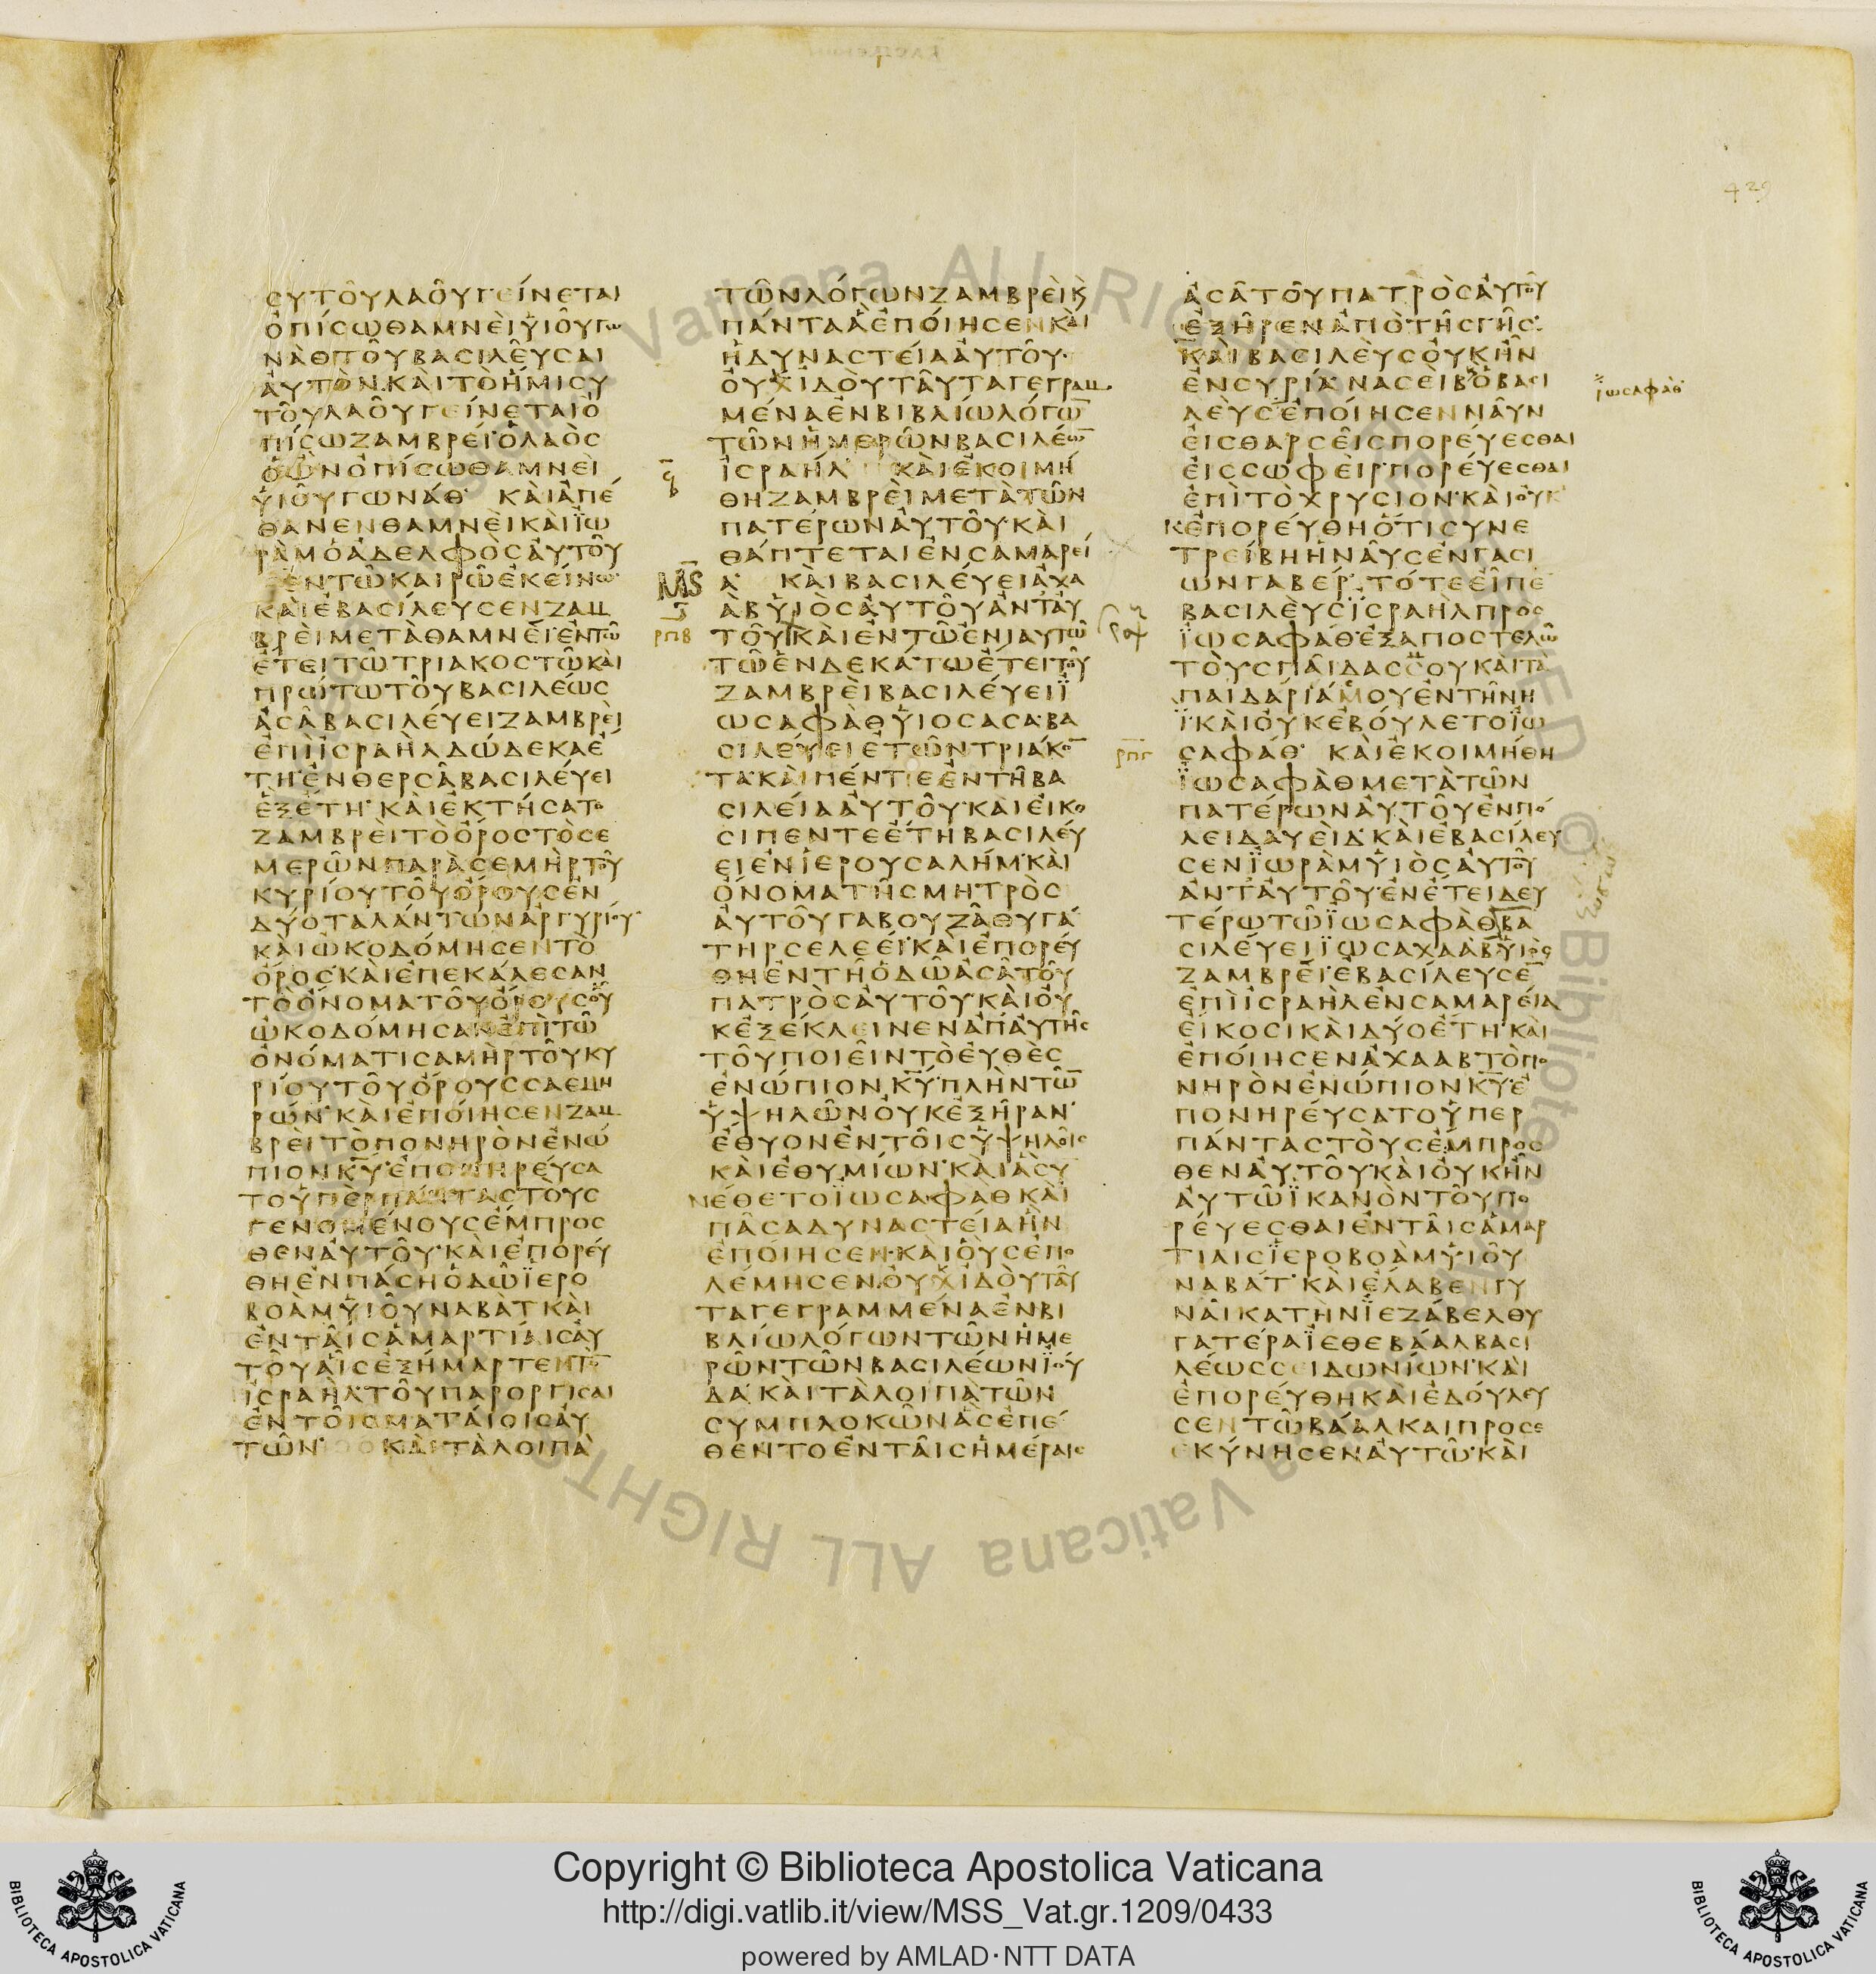 429
ϹΥΤΟΥΛΑΟΥΓΕΙΝΕΤΑΙ
ΟΠΙϹΩΘΑΜΝΕΙΥΙΟΥΓΩ
ΝΑΘΤΟΥΒΑϹΙΛΕΥϹΑΙ
ΑΥΤΟΝΚΑΙΤΟΗΜΙϹΥ
ΤΟΥΛΑΟΥΓΕΙΝΕΤΑΙΟ
ΠΙϹΩΖΑΜΒΡΕΙΟΛΑΟϹ
ΟΩΝΟΠΙϹΩΘΑΜΝΕΙ
ΥΙΟΥΓΩΝΑΘ ΚΑΙΑΠΕ
ΘΑΝΕΝΘΑΜΝΕΙΚΑΙΪΩ
ΡΑΜΟΑΔΕΛΦΟϹΑΥΤΟΥ
ΕΝΤΩΚΑΙΡΩΕΚΕΙΝΩ
ΚΑΙΕΒΑϹΙΛΕΥϹΕΝΖΑΜ
ΒΡΕΙΜΕΤΑΘΑΜΝΕΙΕΝΤΩ
ΕΤΕΙΤΩΤΡΙΑΚΟϹΤΩΚΑΙ
ΠΡΩΤΩΤΟΥΒΑϹΙΛΕΩϹ
ΑϹΑΒΑϹΙΛΕΥΕΙΖΑΜΒΡΕΙ
ΕΠΙΙϹΡΑΗΛΔΩΔΕΚΑΕ
ΤΗΕΝΘΕΡϹΑΒΑϹΙΛΕΥΕΙ
ΕΞΕΤΗΚΑΙΕΚΤΗϹΑΤΟ
ΖΑΜΒΡΕΙΤΟΟΡΟϹΤΟϹΕ
ΜΕΡΩΝΠΑΡΑϹΕΜΗΡΤΟΥ
ΚΥΡΙΟΥΤΟΥΟΡΟΥϹΕΝ
ΔΥΟΤΑΛΑΝΤΩΝΑΡΓΥΡΙΟΥ
ΚΑΙΩΚΟΔΟΜΗϹΕΝΤΟ
ΟΡΟϹΚΑΙΕΠΕΚΑΛΕϹΑΝ
ΤΟΟΝΟΜΑΤΟΥΟΡΟΥϹΟΥ
ΩΚΟΔΟΜΗϹΑΝΕΠΙΤΩ
ΟΝΟΜΑΤΙϹΑΜΗΡΤΟΥΚΥ
ΡΙΟΥΤΟΥΟΡΟΥϹϹΑΕΜΗ
ΡΩΝΚΑΙΕΠΟΙΗϹΕΝΖΑΜ
ΒΡΕΙΤΟΠΟΝΗΡΟΝΕΝΩ
ΠΙΟΝΚΥΕΠΟΝΗΡΕΥϹΑ
ΤΟΥΠΕΡΠΑΝΤΑϹΤΟΥϹ
ΓΕΝΟΜΕΝΟΥϹΕΜΠΡΟϹ
ΘΕΝΑΥΤΟΥΚΑΙΕΠΟΡΕΥ
ΘΗΕΝΠΑϹΗΟΔΩΪΕΡΟ
ΒΟΑΜΥΙΟΥΝΑΒΑΤΚΑΙ
ΕΝΤΑΙϹΑΜΑΡΤΙΑΙϹΑΥ
ΤΟΥΑΙϹΕΞΗΜΑΡΤΕΝΤΟ̅
ΙϹΡΑΗΛΤΟΥΠΑΡΟΡΓΙϹΑΙ
ΕΝΤΟΙϹΜΑΤΑΙΟΙϹΑΥ
ΤΩΝ ΚΑΙΤΑΛΟΙΠΑ
ΤΩΝΛΟΓΩΝΖΑΜΒΡΕΙϗ
ΠΑΝΤΑΑΕΠΟΙΗϹΕΝΚΑΙ
ΗΔΥΝΑϹΤΕΙΑΑΥΤΟΥ
ΟΥΧΙΔΟΥΤΑΥΤΑΓΕΓΡΑΜ
ΜΕΝΑΕΝΒΙΒΛΙΩΛΟΓΩ̅
ΤΩΝΗΜΕΡΩΝΒΑϹΙΛΕΩ̅
ΙϹΡΑΗΛ ΚΑΙΕΚΟΙΜΗ
ΘΗΖΑΜΒΡΕΙΜΕΤΑΤΩΝ
ΠΑΤΕΡΩΝΑΥΤΟΥΚΑΙ
ΘΑΠΤΕΤΑΙΕΝϹΑΜΑΡΕΙ
Α ΚΑΙΒΑϹΙΛΕΥΕΙΑΧΑ
ΑΒΥΙΟϹΑΥΤΟΥΑΝΤΑΥ
ρπβ ΤΟΥΚΑΙΕΝΤΩΕΝΙΑΥΤΩ
ΤΩΕΝΔΕΚΑΤΩΕΤΕΙΤΟΥ
ΖΑΜΒΡΕΙΒΑϹΙΛΕΥΕΙΪ
ΩϹΑΦΑΘΥΙΟϹΑϹΑΒΑ
ϹΙΛΕΥΕΙΕΤΩΝΤΡΙΑΚΟ̅
ΤΑΚΑΙΠΕΝΤΕΕΝΤΗΒΑ
ϹΙΛΕΙΑΑΥΤΟΥΚΑΙΕΙΚΟ
ϹΙΠΕΝΤΕΕΤΗΒΑϹΙΛΕΥ
ΕΙΕΝΙΕΡΟΥϹΑΛΗΜΚΑΙ
ΟΝΟΜΑΤΗϹΜΗΤΡΟϹ
ΑΥΤΟΥΓΑΒΟΥΖΑΘΥΓΑ
ΤΗΡϹΕΛΕΕΙΚΑΙΕΠΟΡΕΥ
ΘΗΕΝΤΗΟΔΩΑϹΑΤΟΥ
ΠΑΤΡΟϹΑΥΤΟΥΚΑΙΟΥ
ΚΕΞΕΚΛΕΙΝΕΝΑΠΑΥΤΗϹ
ΤΟΥΠΟΙΕΙΝΤΟΕΥΘΕϹ
ΕΝΩΠΙΟΝΚΥΠΛΗΝΤΩ̅
ΥΨΗΛΩΝΟΥΚΕΞΗΡΑΝ
ΕΘΥΟΝΕΝΤΟΙϹΥΨΗΛΟΙϹ
ΚΑΙΕΘΥΜΙΩΝΚΑΙΑϹΥ
ΝΕΘΕΤΟΪΩϹΑΦΑΘΚΑΙ
ΠΑϹΑΔΥΝΑϹΤΕΙΑΗΝ
ΕΠΟΙΗϹΕΝΚΑΙΟΥϹΕΠΟ
ΛΕΜΗϹΕΝΟΥΧΙΔΟΥΤΑΥ
ΤΑΓΕΓΡΑΜΜΕΝΑΕΝΒΙ
ΒΛΙΩΛΟΓΩΝΤΩΝΗΜΕ
ΡΩΝΤΩΝΒΑϹΙΛΕΩΝΪΟΥ
ΔΑΚΑΙΤΑΛΟΙΠΑΤΩΝ
ϹΥΜΠΛΟΚΩΝΑϹΕΠΕ
ΘΕΝΤΟΕΝΤΑΙϹΗΜΕΡΑΙϹ
ΑϹΑΤΟΥΠΑΤΡΟϹΑΥΤΟΥ
ΕΞΗΡΕΝΑΠΟΤΗϹΓΗϹ
ΚΑΙΒΑϹΙΛΕΥϹΟΥΚΗΝ
ΕΝϹΥΡΙΑΝΑϹΕΙΒΟΒΑϹΙ
ϊωσαφάθ
ΛΕΥϹΕΠΟΙΗϹΕΝΝΑΥΝ
ΕΙϹΘΑΡϹΕΙϹΠΟΡΕΥΕϹΘΑΙ
ΕΙϹϹΩΦΕΙΡΠΟΡΕΥΕϹΘΑΙ
ΕΠΙΤΟΧΡΥϹΙΟΝΚΑΙΟΥΚ
ΕΠΟΡΕΥΘΗΟΤΙϹΥΝΕ
ΤΡΕΙΒΗΗΝΑΥϹΕΝΓΑϹΙ
ΩΝΓΑΒΕΡΤΟΤΕΕΙΠΕ
ΒΑϹΙΛΕΥϹΪϹΡΑΗΛΠΡΟϹ
ΪΩϹΑΦΑΘΕΞΑΠΟϹΤΕΛΩ
ΤΟΥϹΠΑΙΔΑϹϹΟΥΚΑΙΤΑ
ΠΑΙΔΑΡΙΑΜΟΥΕΝΤΗΝΗ
ΪΚΑΙΟΥΚΕΒΟΥΛΕΤΟΪΩ
ρπγ ϹΑΦΑΘ ΚΑΙΕΚΟΙΜΗΘΗ
ΪΩϹΑΦΑΘΜΕΤΑΤΩΝ
ΠΑΤΕΡΩΝΑΥΤΟΥΕΝΠΟ
ΛΕΙΔΑΥΕΙΔΚΑΙΕΒΑϹΙΛΕΥ
ϹΕΝΪΩΡΑΜΥΙΟϹΑΥΤΟΥ
ΑΝΤΑΥΤΟΥΕΝΕΤΕΙΔΕΥ
ΤΕΡΩΤΩΪΩϹΑΦΑΘΒΑ
ϹΙΛΕΥΕΙΪΩϹΑΧΑΑΒΥΙΟϹ
ΖΑΜΒΡΕΙΕΒΑϹΙΛΕΥϹΕ̅
ΕΠΙΙϹΡΑΗΛΕΝϹΑΜΑΡΕΙΑ
ΕΙΚΟϹΙΚΑΙΔΥΟΕΤΗΚΑΙ
ΕΠΟΙΗϹΕΝΑΧΑΑΒΤΟΠΟ
ΝΗΡΟΝΕΝΩΠΙΟΝΚΥΕ
ΠΟΝΗΡΕΥϹΑΤΟΥΠΕΡ
ΠΑΝΤΑϹΤΟΥϹΕΜΠΡΟϹ
ΘΕΝΑΥΤΟΥΚΑΙΟΥΚΗΝ
ΑΥΤΩΪΚΑΝΟΝΤΟΥΠΟ
ΡΕΥΕϹΘΑΙΕΝΤΑΙϹΑΜΑΡ
ΤΙΑΙϹΪΕΡΟΒΟΑΜΥΙΟΥ
ΝΑΒΑΤΚΑΙΕΛΑΒΕΝΓΥ
ΝΑΙΚΑΤΗΝΪΕΖΑΒΕΛΘΥ
ΓΑΤΕΡΑΪΕΘΕΒΑΑΛΒΑϹΙ
ΛΕΩϹϹΕΙΔΩΝΙΩΝΚΑΙ
ΕΠΟΡΕΥΘΗΚΑΙΕΔΟΥΛΕΥ
ϹΕΝΤΩΒΑΑΛΚΑΙΠΡΟϹΕ
ΚΥΝΗϹΕΝΑΥΤΩΚΑΙ
Copyright © Biblioteca Apostolica Vaticana
http://digi.vatlib.it/view/MSS_Vat.gr.1209/0433
powered by AMLAD·NTT DATA
BIBLIOTECA APOSTOLICA VATICANA
BIBLIOTECA APOSTOLICA VATICANA